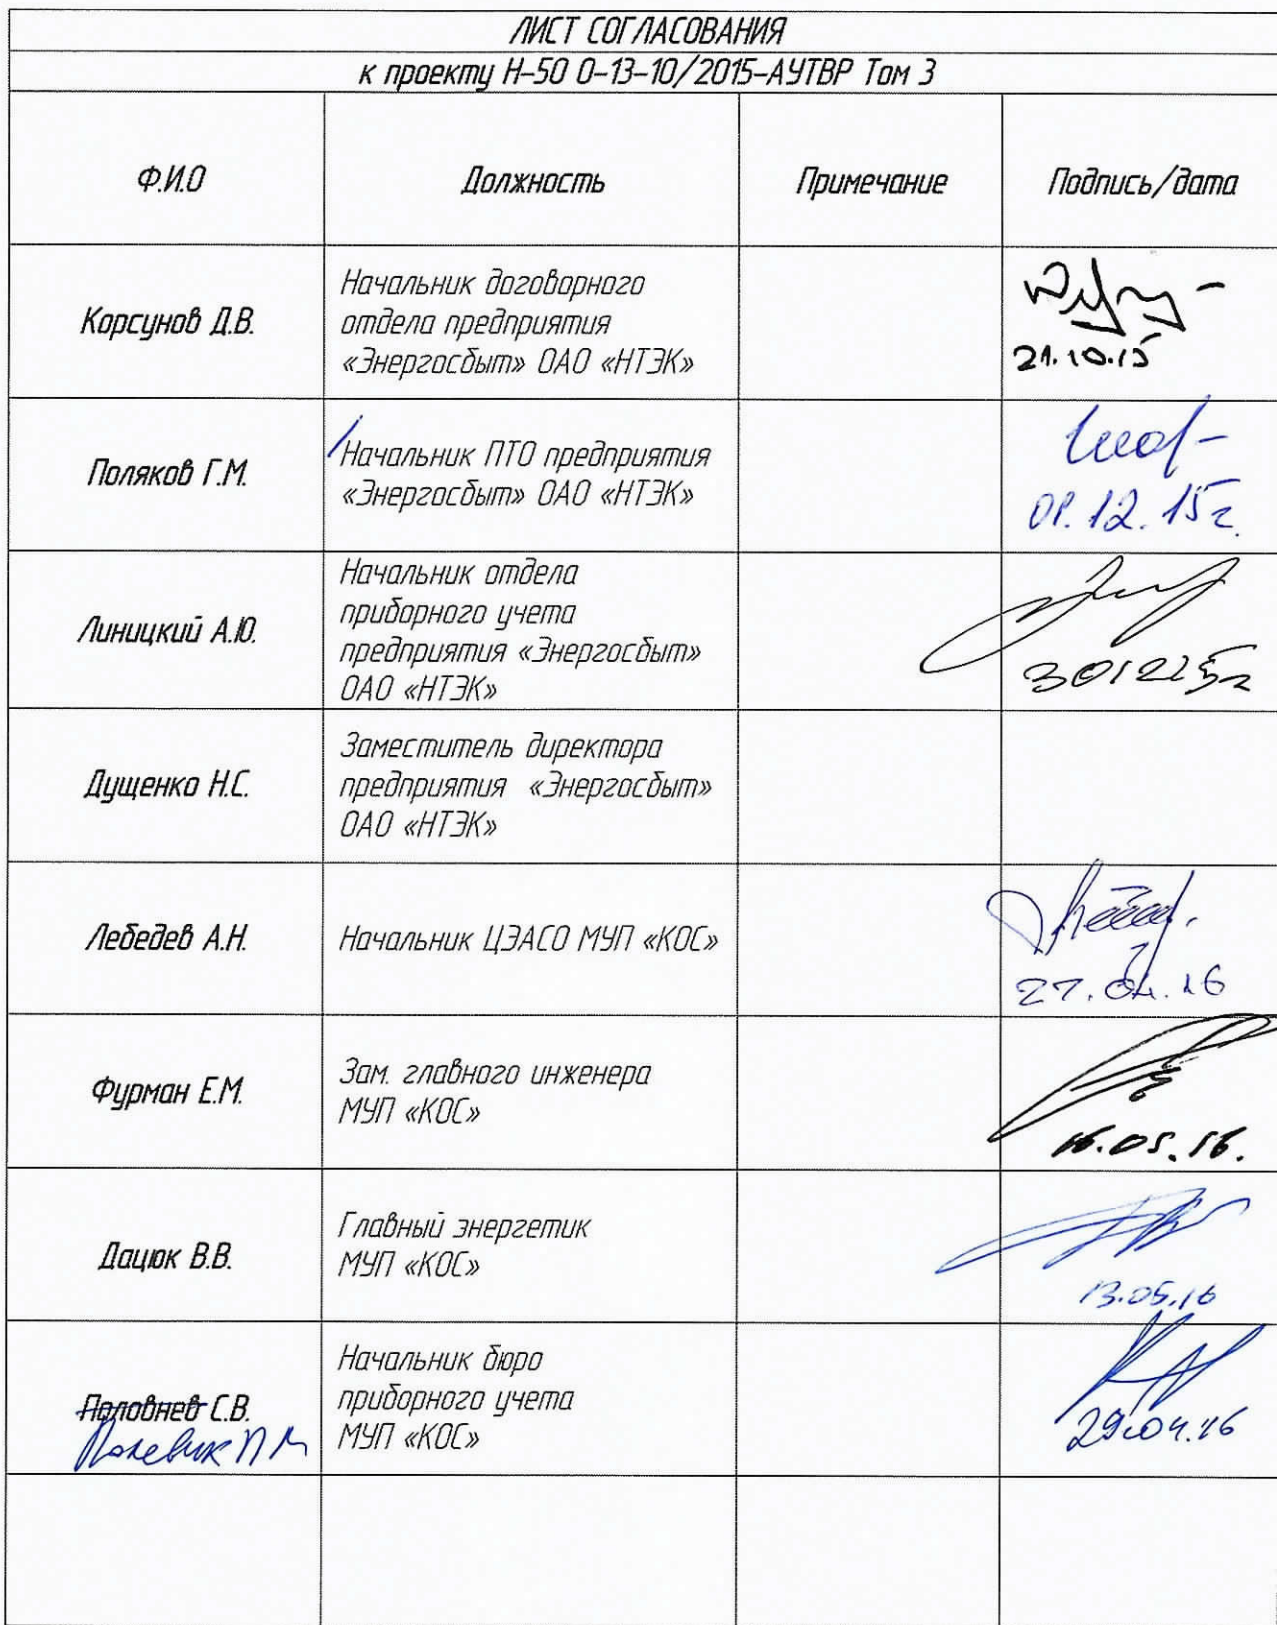 ЛИСТ СОГЛАСОВАНИЯ
к проекту Н-50 0-13-10/2015-АУТВР Том 3
Ф.И.О
Должность
Примечание
Подпись/дата
Корсунов Д.В.
Начальник договорного
отдела предприятия
«Энергосбыт» ОАО «НТЭК»
21.10.15
Поляков Г.М.
Начальник ПТО предприятия
«Энергосбыт» ОАО «НТЭК»
12.15г.
Линицкий А.Ю.
Начальник отдела
приборного учета
предприятия «Энергосбыт»
ОАО «НТЭК»
Дущенко Н.С.
Заместитель директора
предприятия «Энергосбыт»
ОАО «НТЭК»
Лебедев А.Н.
Начальник ЦЭАСО МУП «КОС»
27.04.16
Фурман Е.М.
Зам. главного инженера
МУП «КОС»
16.05.16.
Дацюк В.В.
Главный энергетик
МУП «КОС»
13.05.16
Половнев С.В.
Начальник бюро
приборного учета
МУП «КОС»
29.04.16